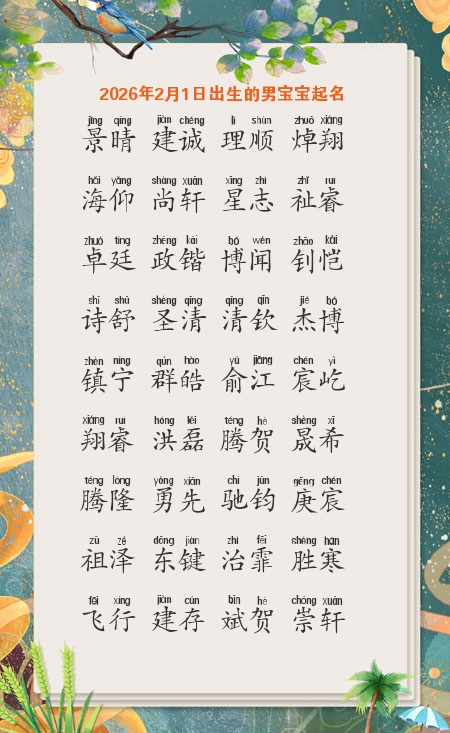 2026年2月1日出生的男宝宝起名
jǐng qíng jiàn chéng lǐ shùn zhuō xiáng
景晴 建诚 理顺 焯翔
hǎi yǎng shàng xuān xīng zhì zhǐ ruì
海仰 尚轩 星志 祉睿
zhuó tíng zhèng kǎi bó wén zhāo kǎi
卓廷 政锴 博闻 钊恺
shī shū shèng qīng qīng qīn jié bó
诗舒 圣清 清钦 杰博
zhèn níng qún hào yú jiāng chén yì
镇宁 群皓 俞江 宸屹
xiáng ruì hóng lěi téng hè shèng xī
翔睿 洪磊 腾贺 晟希
téng lóng yǒng xiān chí jūn gēng chén
腾隆 勇先 驰钧 庚宸
zǔ zé dōng jiàn zhì fēi shèng hán
祖泽 东键 治霏 胜寒
fēi xíng jiàn cún bīn hè chóng xuān
飞行 建存 斌贺 崇轩